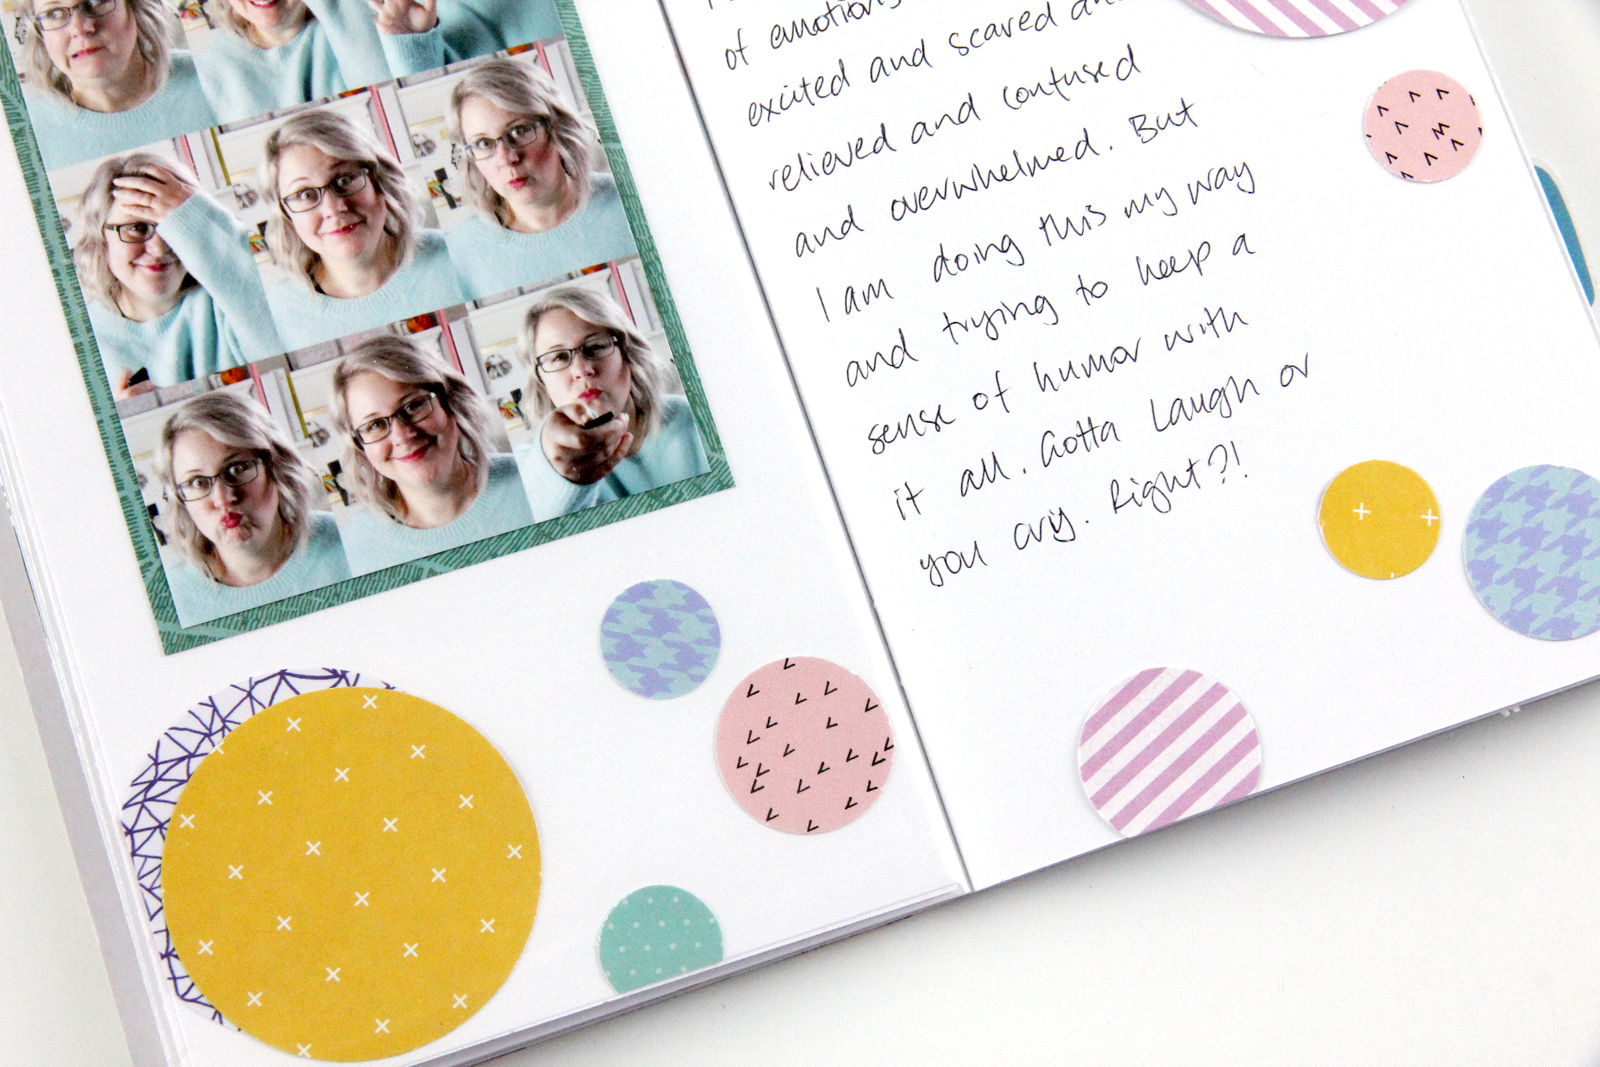 of emotions
excited and scared and
relieved and confused
and overwhelmed. But
I am doing this my way
and trying to keep a
sense of humor with
it all. Gotta laugh or
you cry. Right?!